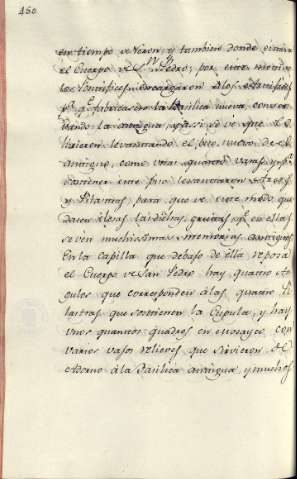 160
en tiempo de Neron, y tambien donde estava
el Cuerpo de Sn. Pedro; por este motivo
los Pontifices encargaron a los
qe. fabricasen la Basilica nueva, conser
bando la antigua, y assi se ve que
hicieron levantando el piso nuevo de el
antiguo, como unas quatro varas, y pa
sostener este piso levantaron
y Pilastras para que de este modo que
dasen ilesas las dichas grutas, qe. en ellas
se ven muchissimas memorias antiguas
En la capilla que debajo de ella reposa
el Cuerpo de San Pedro hay quatro An
gulos que corresponden á las quatro Pi
lastras que sostienen la Cupula, y hay
unos quantos quadros en Mosayco, con
varios vajos relieves que sirvieron de
Adorno á la Basilica antigua, y muchos